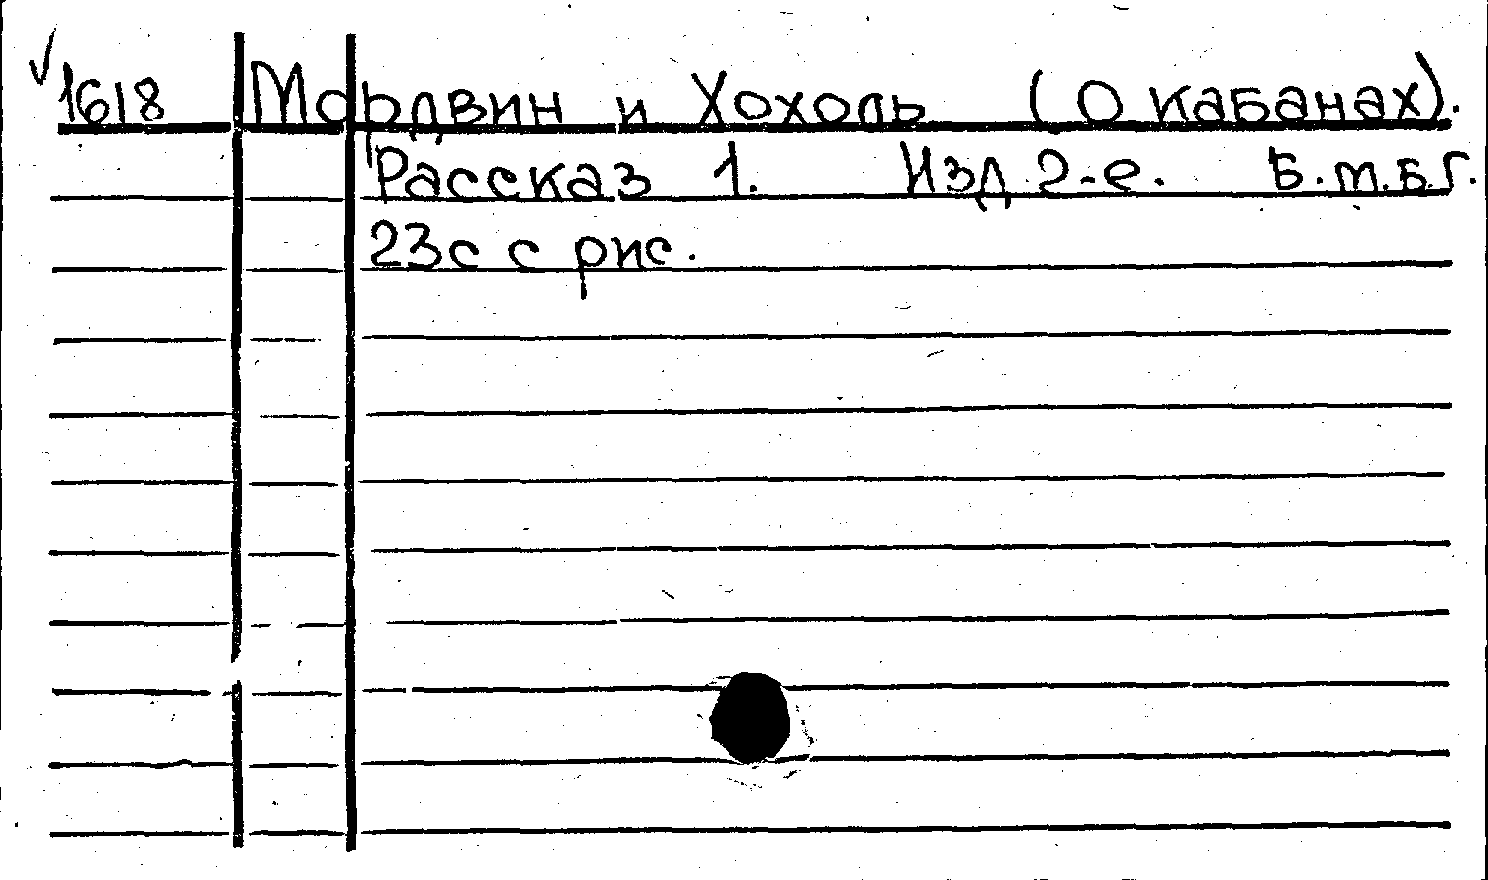 1618 Мордвин и Хохоль (О кабанах).
Рассказ 1. Изд 2-е. Б.т.Б.г.
23с с рис.